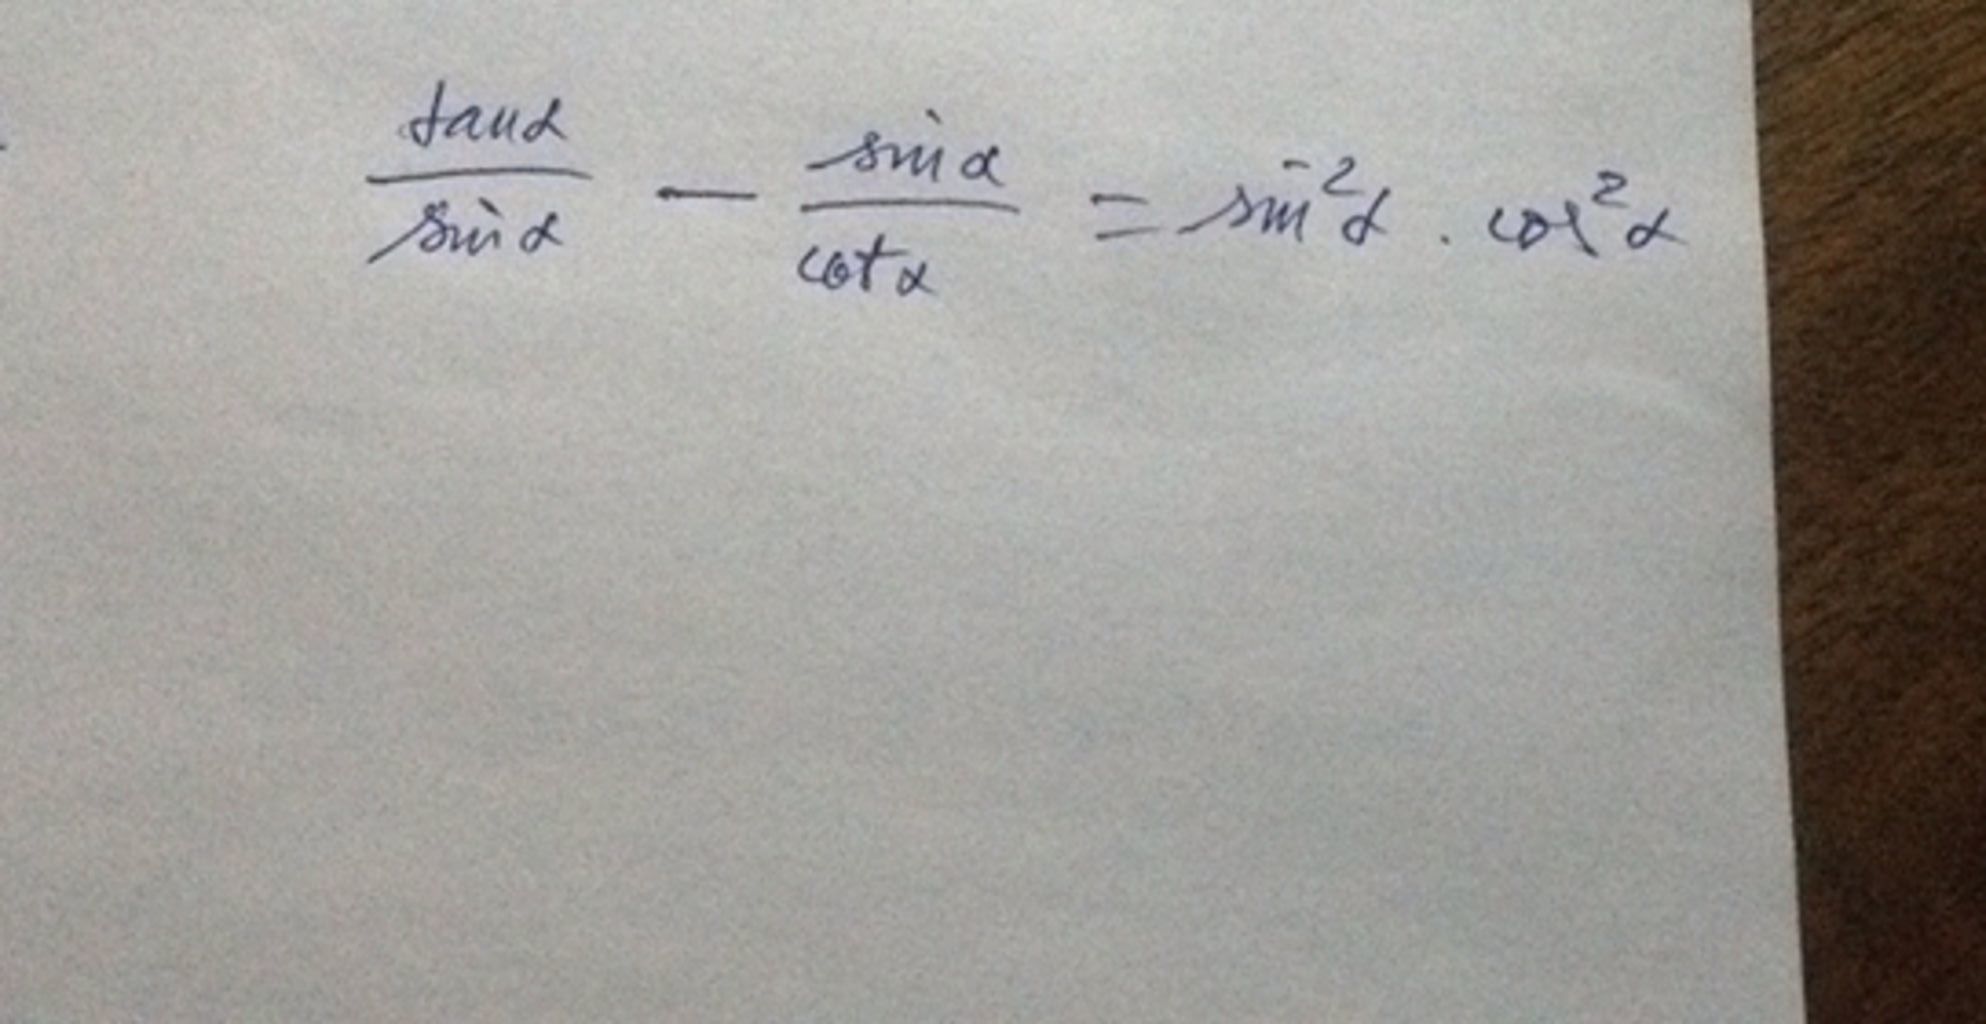 tanα/sinα − sinα/cotα = sin²α . cos²α